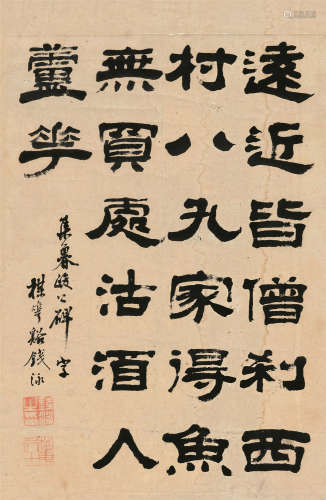 遠近皆僧刹西
村八九家得魚
無買處沽酒入
蘆花
集魯峻公碑字
楳華谿錢泳